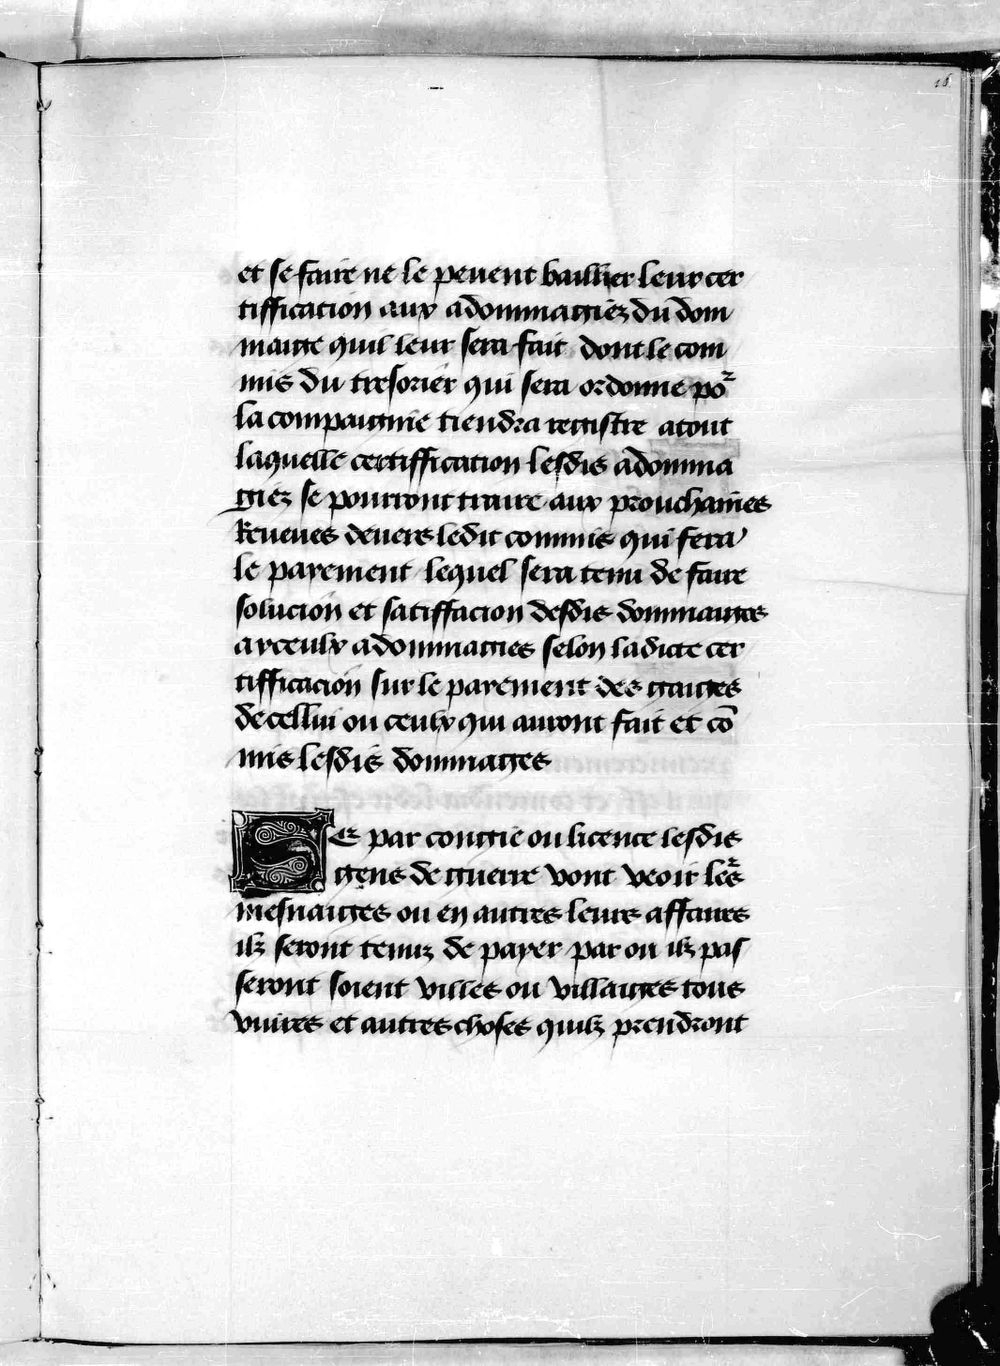 16
et se faire ne le peuent baillier leur cer
tiffication aux adommagiez du dom
maige quil leur sera fait dont le com
mis du tresorier qui sera ordonne po͛
la compaignie tiendra registre atout
laquelle certiffication lesdis adomma
giez se pourront traire aux prouchaines
Reueues deuers ledit commis qui fera
le payement lequel sera tenu de faire
solucion et satiffacion desdis dommaiges
ayceulx adommagies selon ladicte cer
tifficacion sur le payement des gaiges
de cellui ou ceulx qui auront fait et cō
mis lesdis dommages
Se par congie ou licence lesdis
gens de guerre vont veoir le͛s
mesnaiges ou en autres leurs affaires
ilz seront tenuz de payer par ou ilz pas
seront soient villes ou villaiges tous
viures et autres choses quilz prendront